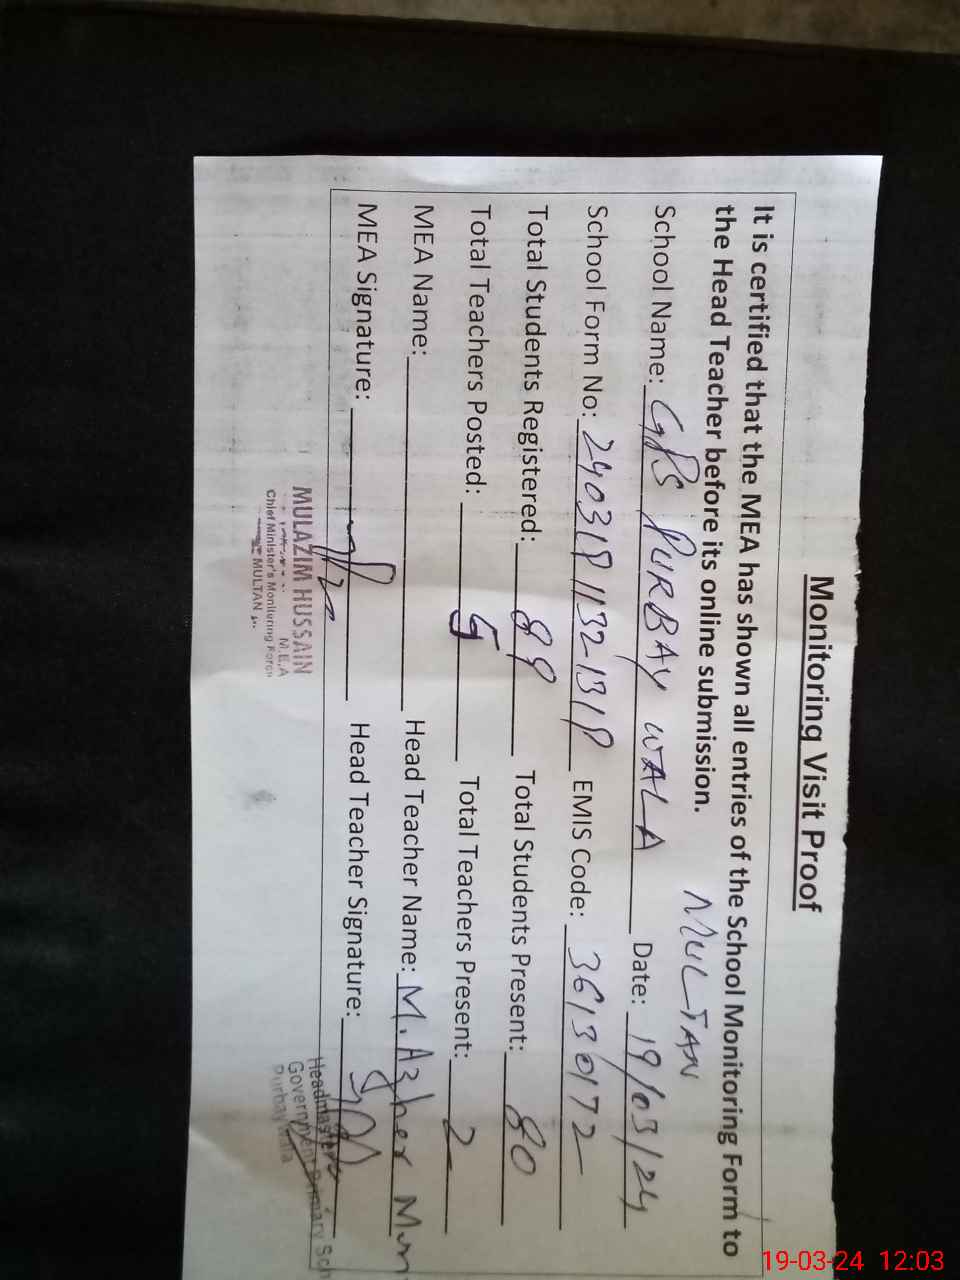 Monitoring Visit Proof
It is certified that the MEA has shown all entries of the School Monitoring Form to
the Head Teacher before its online submission.
MULTAN
School Name: GPS PURBAY WALA Date: 19/03/24
School Form No: EMIS Code: 36130172
Total Students Registered: 89 Total Students Present: 80
Total Teachers Posted: Total Teachers Present: 2
MEA Name: Head Teacher Name: M. Azher
MEA Signature: Head Teacher Signature:
MULAZIM HUSSAIN
M.E.A
Chief Minister's Monitoring Force
MULTAN
Headmaster
Government Primary Sch
Purbay Wala
19-03-24 12:03